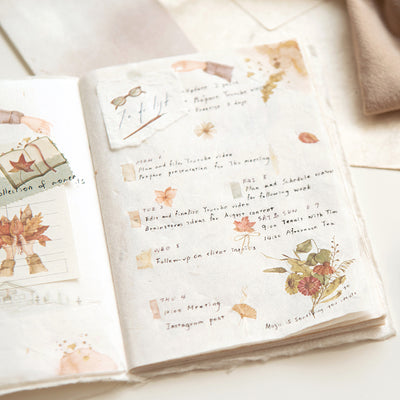 Collection of moments
To do list
Prepare Youtube video
MON 1
Plan and film Youtube video
Prepare presentation for the meeting
TUE 2
Edit and finalize Youtube video
Brainstorm ideas for August content
WED 3
Follow-up on client
THU 4
Meeting
Instagram post
FRI 5
Plan and Schedule
for following week
SAT 6 SUN 7
9:00 Tennis with Tim
14:00 Afternoon Tea
Magic is something you